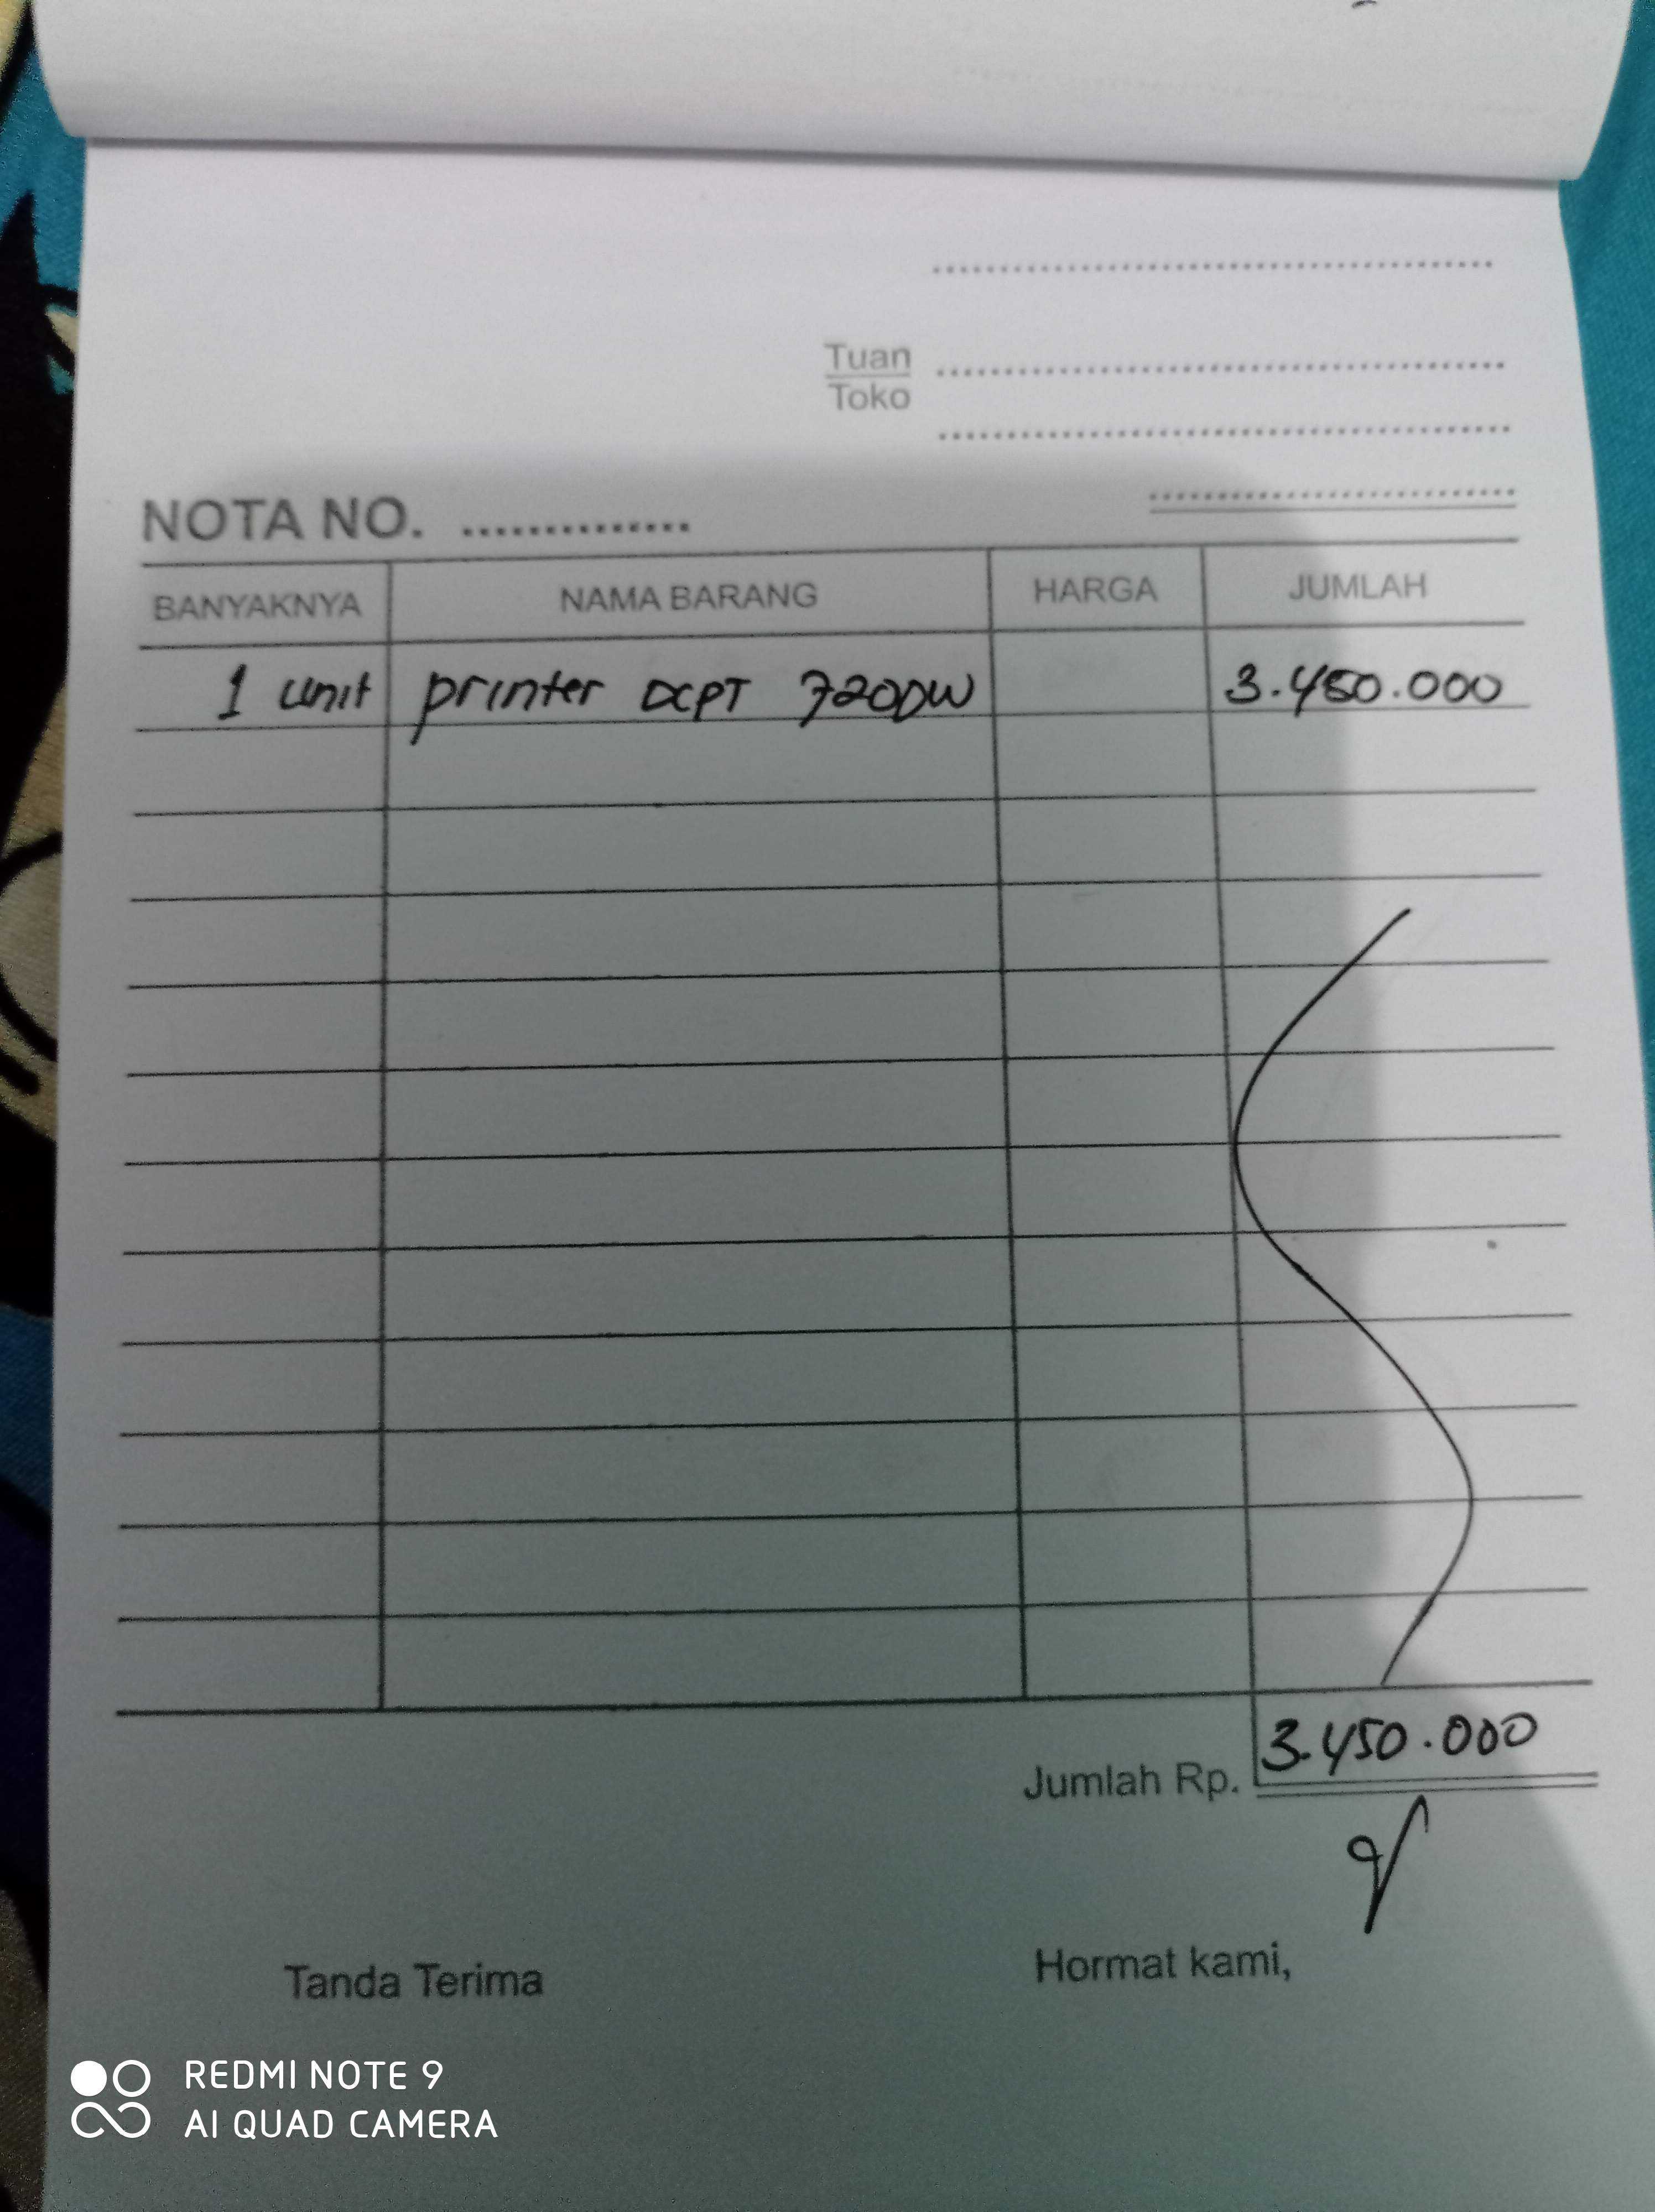 Tuan
Toko
NOTA NO. ..............
BANYAKNYA NAMA BARANG HARGA JUMLAH
1 unit printer DCPT 720DW 3.450.000
Jumlah Rp. 3.450.000
Tanda Terima Hormat kami,
REDMI NOTE 9
AI QUAD CAMERA